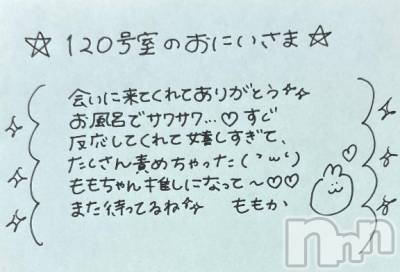 ☆120号室のおにいさま☆
会いに来てくれてありがとう✨
お風呂でサワサワ…♡すぐ
反応してくれて嬉しすぎて、
たくさん責めちゃった(｀ω´)
ももちゃん推しになって～♡♡
また待ってるね✨ ももか
nmn